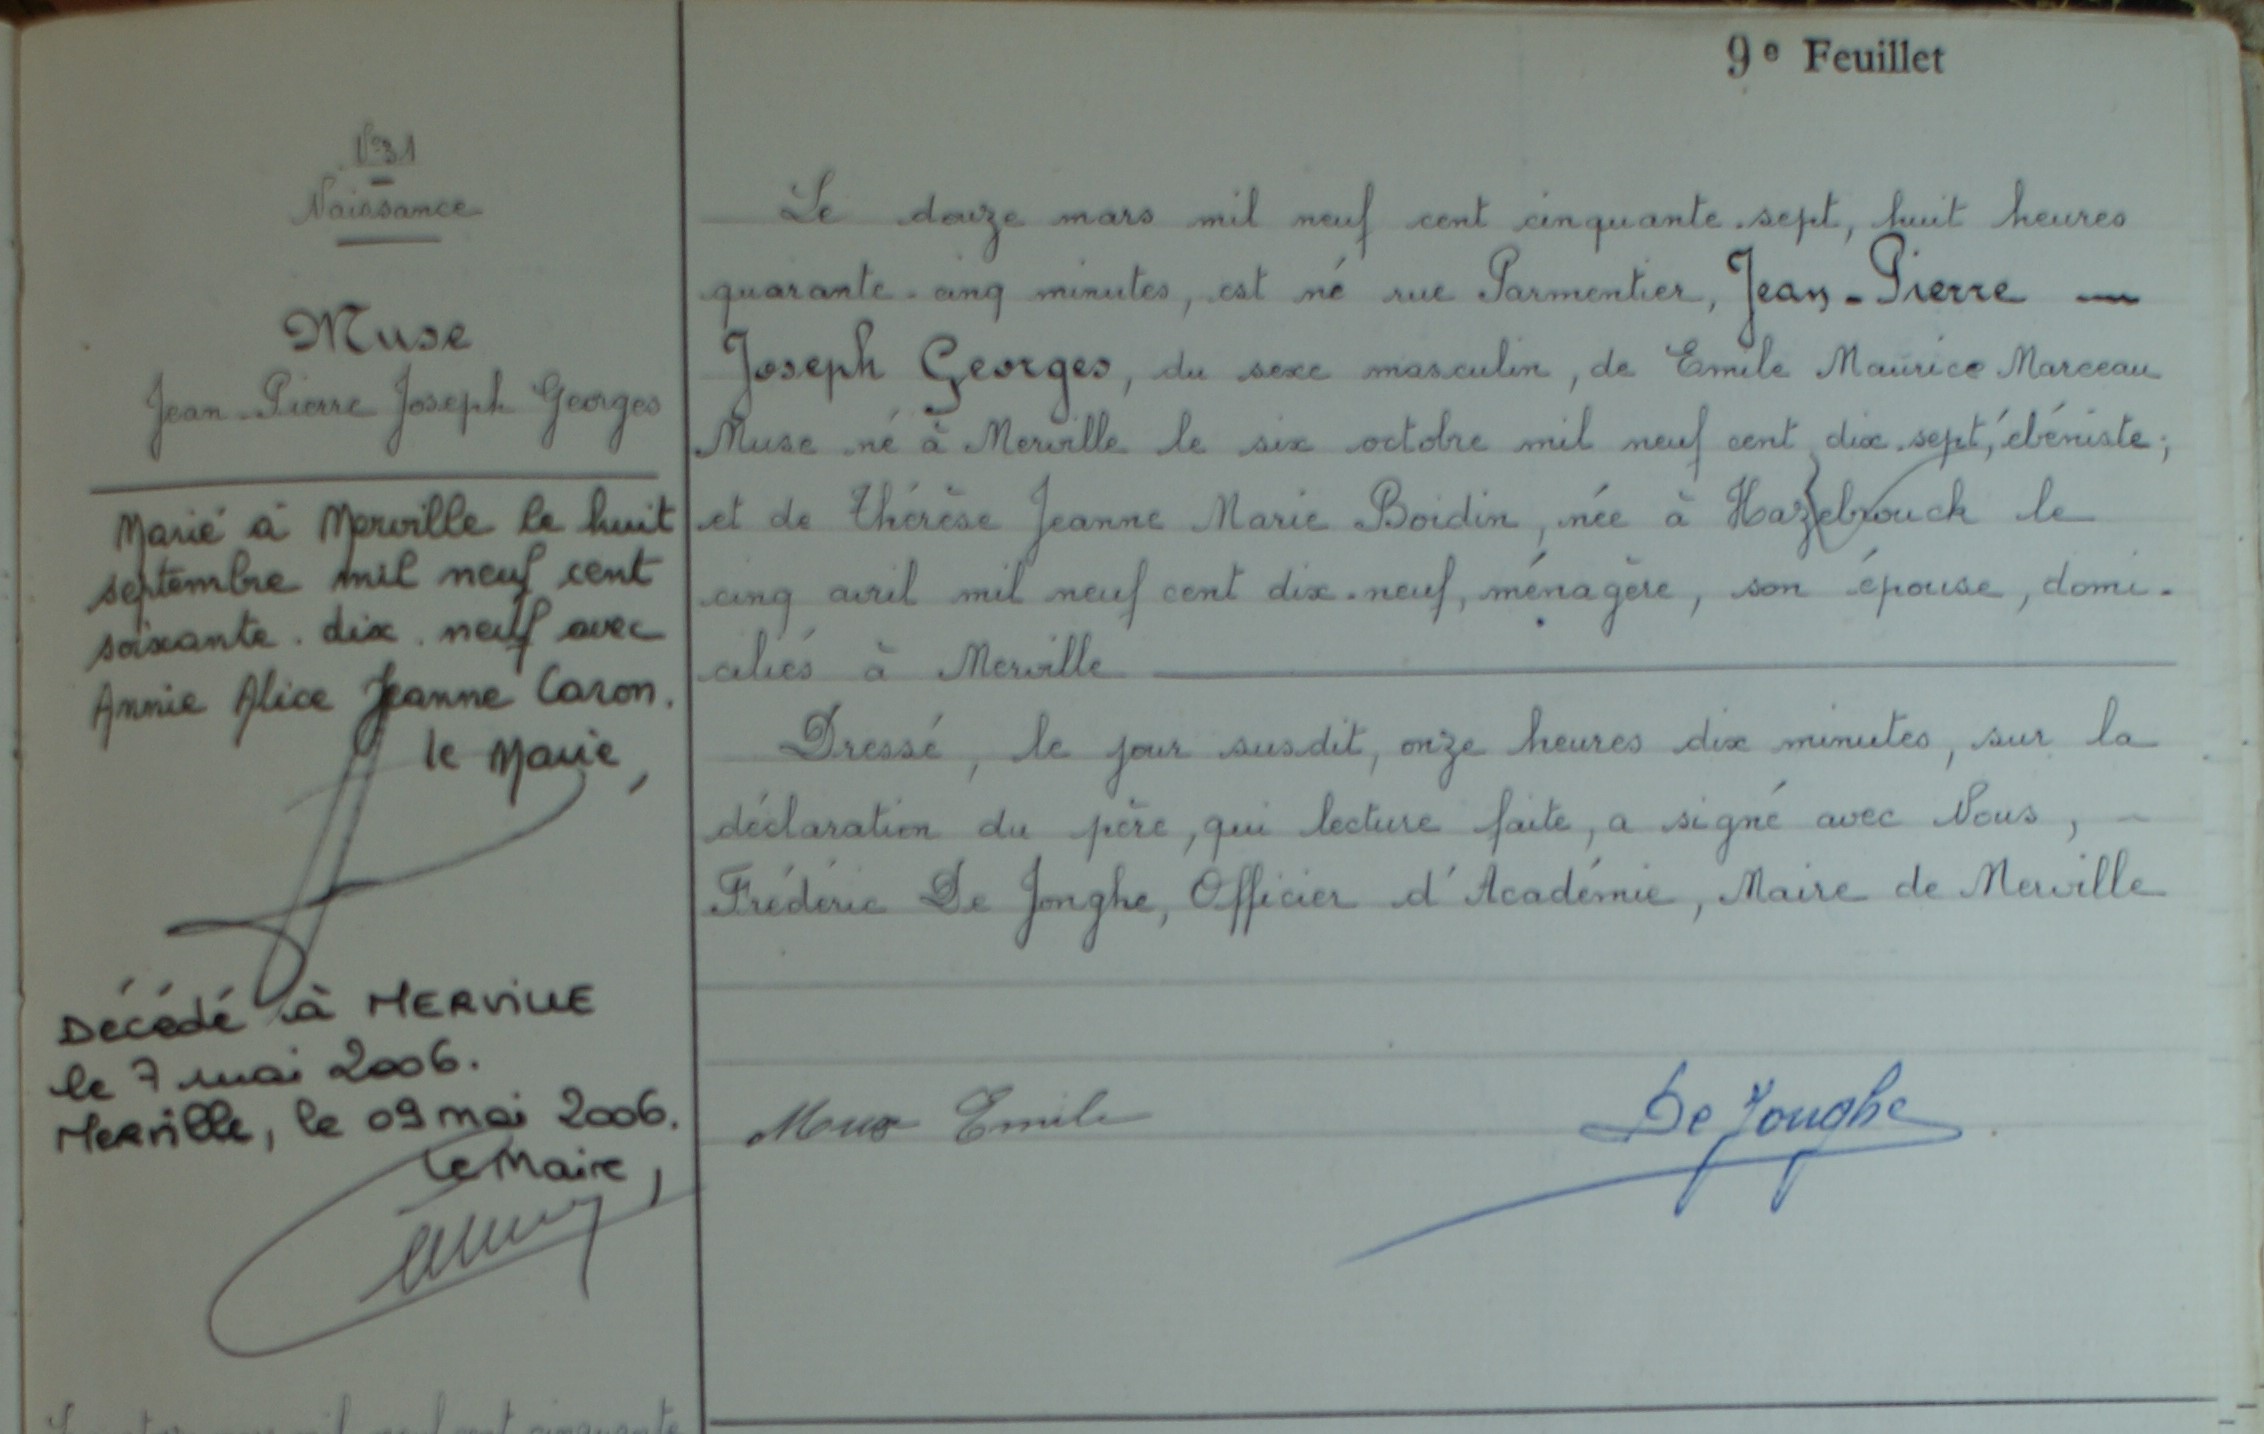 9e Feuillet
N°31
Naissance
Muse
Jean-Pierre Joseph Georges
Marié à Merville le huit
septembre mil neuf cent
soixante-dix-neuf avec
Annie Alice Jeanne Caron.
le Maire,
Décédé à MERVILLE
le 7 mai 2006.
Merville, le 09 mai 2006.
Le Maire,
Le douze mars mil neuf cent cinquante-sept, huit heures
quarante-cinq minutes, est né rue Parmentier, Jean-Pierre —
Joseph Georges, du sexe masculin, de Emile Maurice Marceau
Muse né à Merville le six octobre mil neuf cent dix-sept, ébéniste;
et de Thérèse Jeanne Marie Boidin, née à Hazebrouck le
cinq avril mil neuf cent dix-neuf, ménagère, son épouse, domi-
ciliés à Merville —
Dressé, le jour susdit, onze heures dix minutes, sur la
déclaration du père, qui lecture faite, a signé avec Nous, —
Frédéric De Jonghe, Officier d'Académie, Maire de Merville
Muse Emile
De Jonghe